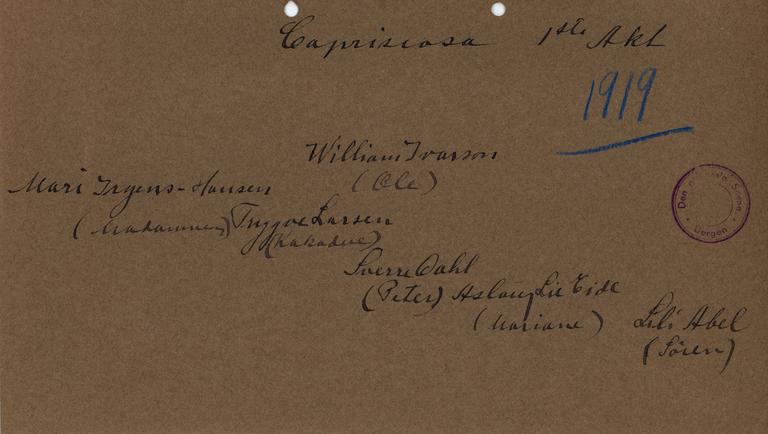 Capriscosa 1ste Akt
1919
William Ivarson
(Ole)
Mari Irgens-Hansen
(Madammen)
Trygve Larsen
(Kakadue)
Sverre Dahl
(Peter)
Aslaug Lie Eide
(Mariane)
Lili Abel
(Sören)
Den Scene
Bergen